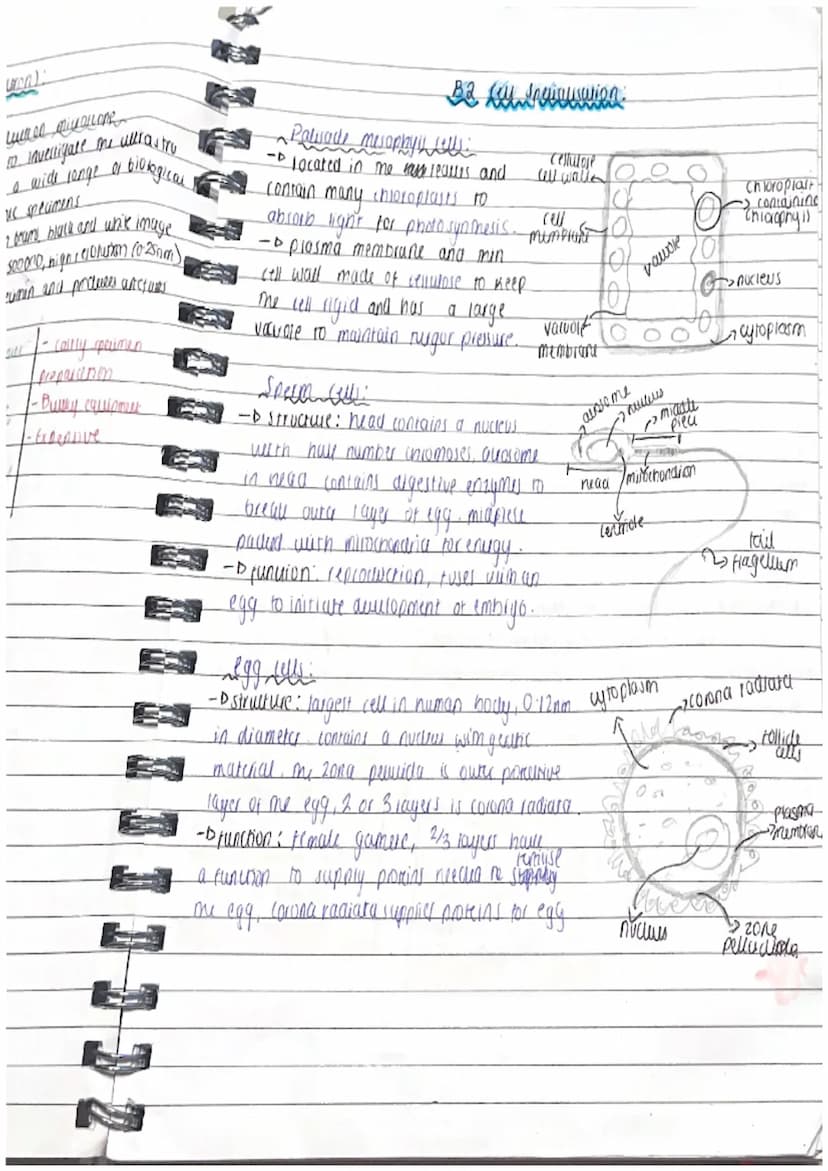 uron):
to investigate the ultrastru
a wide range of biological
specimens
black and white image
500000, high resolution (0.25nm)
and produces
- costly specimen
preparation
- Bulky equipment
- Expensive
B2 Cell Specialisation:
Palisade mesophyll cells:
-D located in the leaves and
contain many chloroplasts to
absorb light for photosynthesis.
-D plasma membrane and thin
cell wall made of cellulose to keep
the cell rigid and has a large
vacuole to maintain turgor pressure.
cellulose
cell wall
cell
membrane
vacuole
membrane
vacuole
chloroplast
containing
chlorophyll
nucleus
cytoplasm
Sperm cells:
-D structure: head contains a nucleus
with half number acrosome
in head contains digestive enzymes to
break outer layer of egg. midpiece
packed with mitochondria for energy.
-D function: reproduction, fuses with an
egg to initiate development of embryo.
nucleus
middle
head
mitochondrion
centriole
tail
flagellum
egg cells:
-D structure: largest cell in human body, 0.12nm
in diameter contains a nucleus with genetic
material, the zona pellucida is outer protective
layer of the egg, 2 or 3 layers is corona radiata.
-D function: female gamete, 2/3 layers have
a function to supply proteins needed to
the egg, corona radiata supplies proteins for egg
cytoplasm
corona radiata
follicle
cells
plasma
membran
nucleus
zone